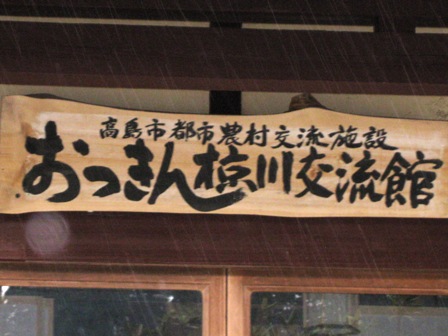 高島市都市農村交流施設
おっきん椋川交流館